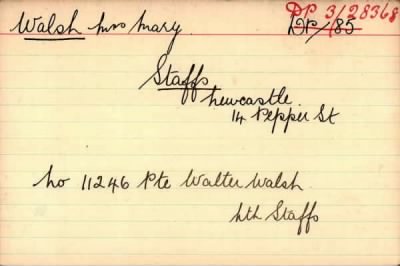 Walsh Mrs Mary.
DP 3/28368
DP/85
Staffs
Newcastle.
14 Pepper St
No 11246 Pte Walter Walsh.
Nth Staffs